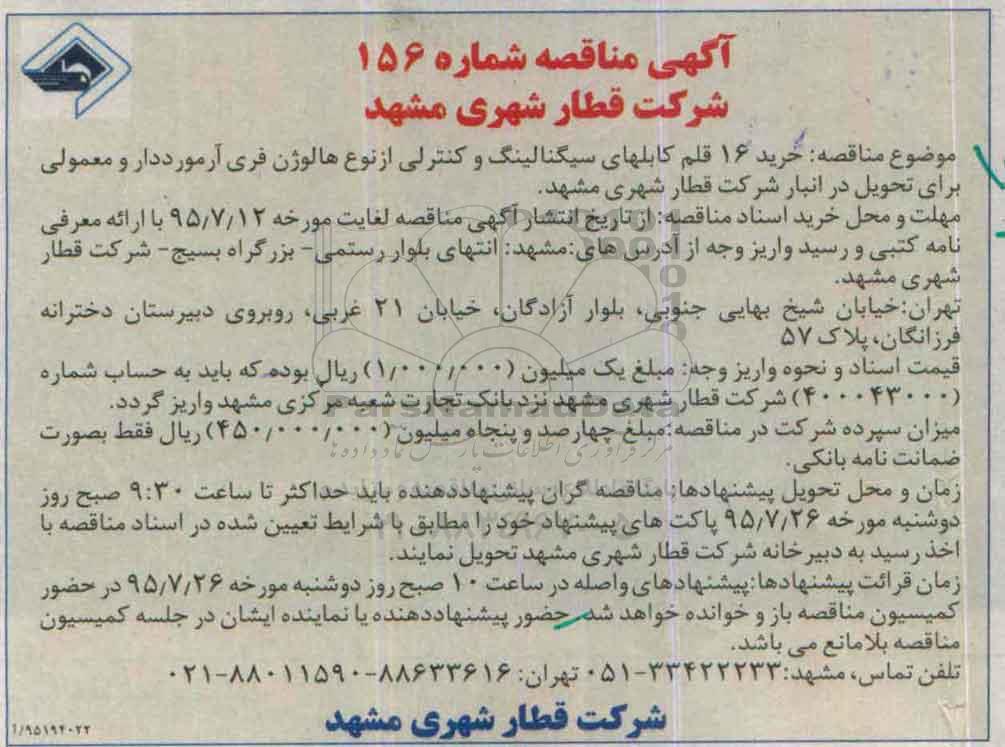 آگهی مناقصه شماره ۱۵۶
شرکت قطار شهری مشهد
موضوع مناقصه: خرید ۱۶ قلم کابلهای سیگنالینگ و کنترلی از نوع هالوژن فری آرمورددار و معمولی
برای تحویل در انبار شرکت قطار شهری مشهد.
مهلت و محل خرید اسناد مناقصه: از تاریخ انتشار آگهی مناقصه لغایت مورخه ۹۵/۷/۱۲ با ارائه معرفی
نامه کتبی و رسید واریز وجه از آدرس های:مشهد: انتهای بلوار رستمی- بزرگراه بسیج- شرکت قطار
شهری مشهد.
تهران:خیابان شیخ بهایی جنوبی، بلوار آزادگان، خیابان ۲۱ غربی، روبروی دبیرستان دخترانه
فرزانگان، پلاک ۵۷
قیمت اسناد و نحوه واریز وجه: مبلغ یک میلیون (۱/۰۰۰/۰۰۰) ریال بوده که باید به حساب شماره
(۴۰۰۰۴۳۰۰۰) شرکت قطار شهری مشهد نزد بانک تجارت شعبه مرکزی مشهد واریز گردد.
ParsNamadData
میزان سپرده شرکت در مناقصه:مبلغ چهارصد و پنجاه میلیون (۴۵۰/۰۰۰/۰۰۰) ریال فقط بصورت
ضمانت نامه بانکی.
زمان و محل تحویل پیشنهادها: مناقصه گران پیشنهاددهنده باید حداکثر تا ساعت ۹:۳۰ صبح روز
دوشنبه مورخه ۹۵/۷/۲۶ پاکت های پیشنهاد خود را مطابق با شرایط تعیین شده در اسناد مناقصه با
اخذ رسید به دبیرخانه شرکت قطار شهری مشهد تحویل نمایند.
زمان قرائت پیشنهادها:پیشنهادهای واصله در ساعت ۱۰ صبح روز دوشنبه مورخه ۹۵/۷/۲۶ در حضور
کمیسیون مناقصه باز و خوانده خواهد شد. حضور پیشنهاددهنده یا نماینده ایشان در جلسه کمیسیون
مناقصه بلامانع می باشد.
تلفن تماس، مشهد:۳۳۴۲۲۲۳۳-۰۵۱ تهران: ۸۸۶۳۳۶۱۶-۸۸۰۱۱۵۹۰-۰۲۱
شرکت قطار شهری مشهد